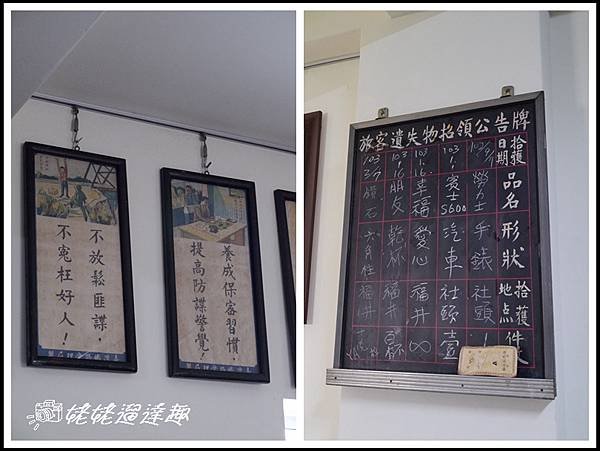 不放鬆匪諜，
不冤枉好人！
養成保密習慣，
提高防諜警覺！
旅客遺失物招領公告牌
拾獲日期
品名
形狀
拾獲地點
件
勞力士
手錶
社頭
103
1.
賓士S600
汽車
社頭
壹
103
1.
16.
幸福
愛心
福井
∞
103
1.
16.
朋友
乾杯
福井
103
鑽石
六角柱
福井
姥姥遛達趣